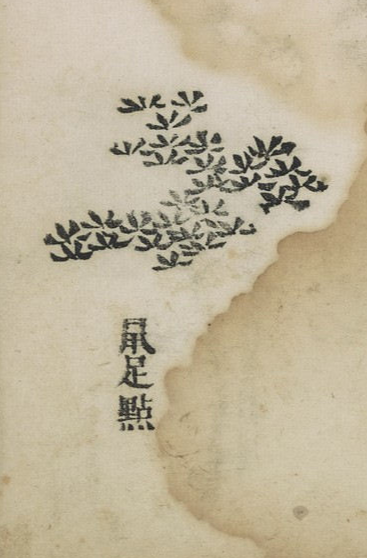 鼠足點